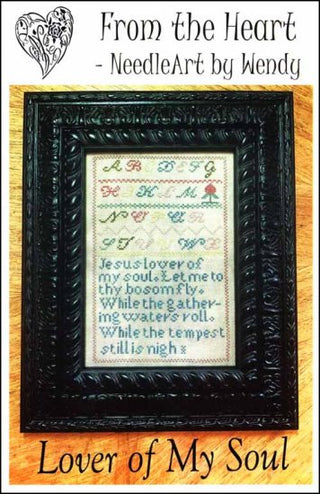 From the Heart
- NeedleArt by Wendy
A B D E F G
H I K L M
N O P Q R
S T U V W B
Jesus lover of
my soul. Let me to
thy bosom fly.
While the gather-
ing waters roll.
While the tempest
still is nigh
Lover of My Soul